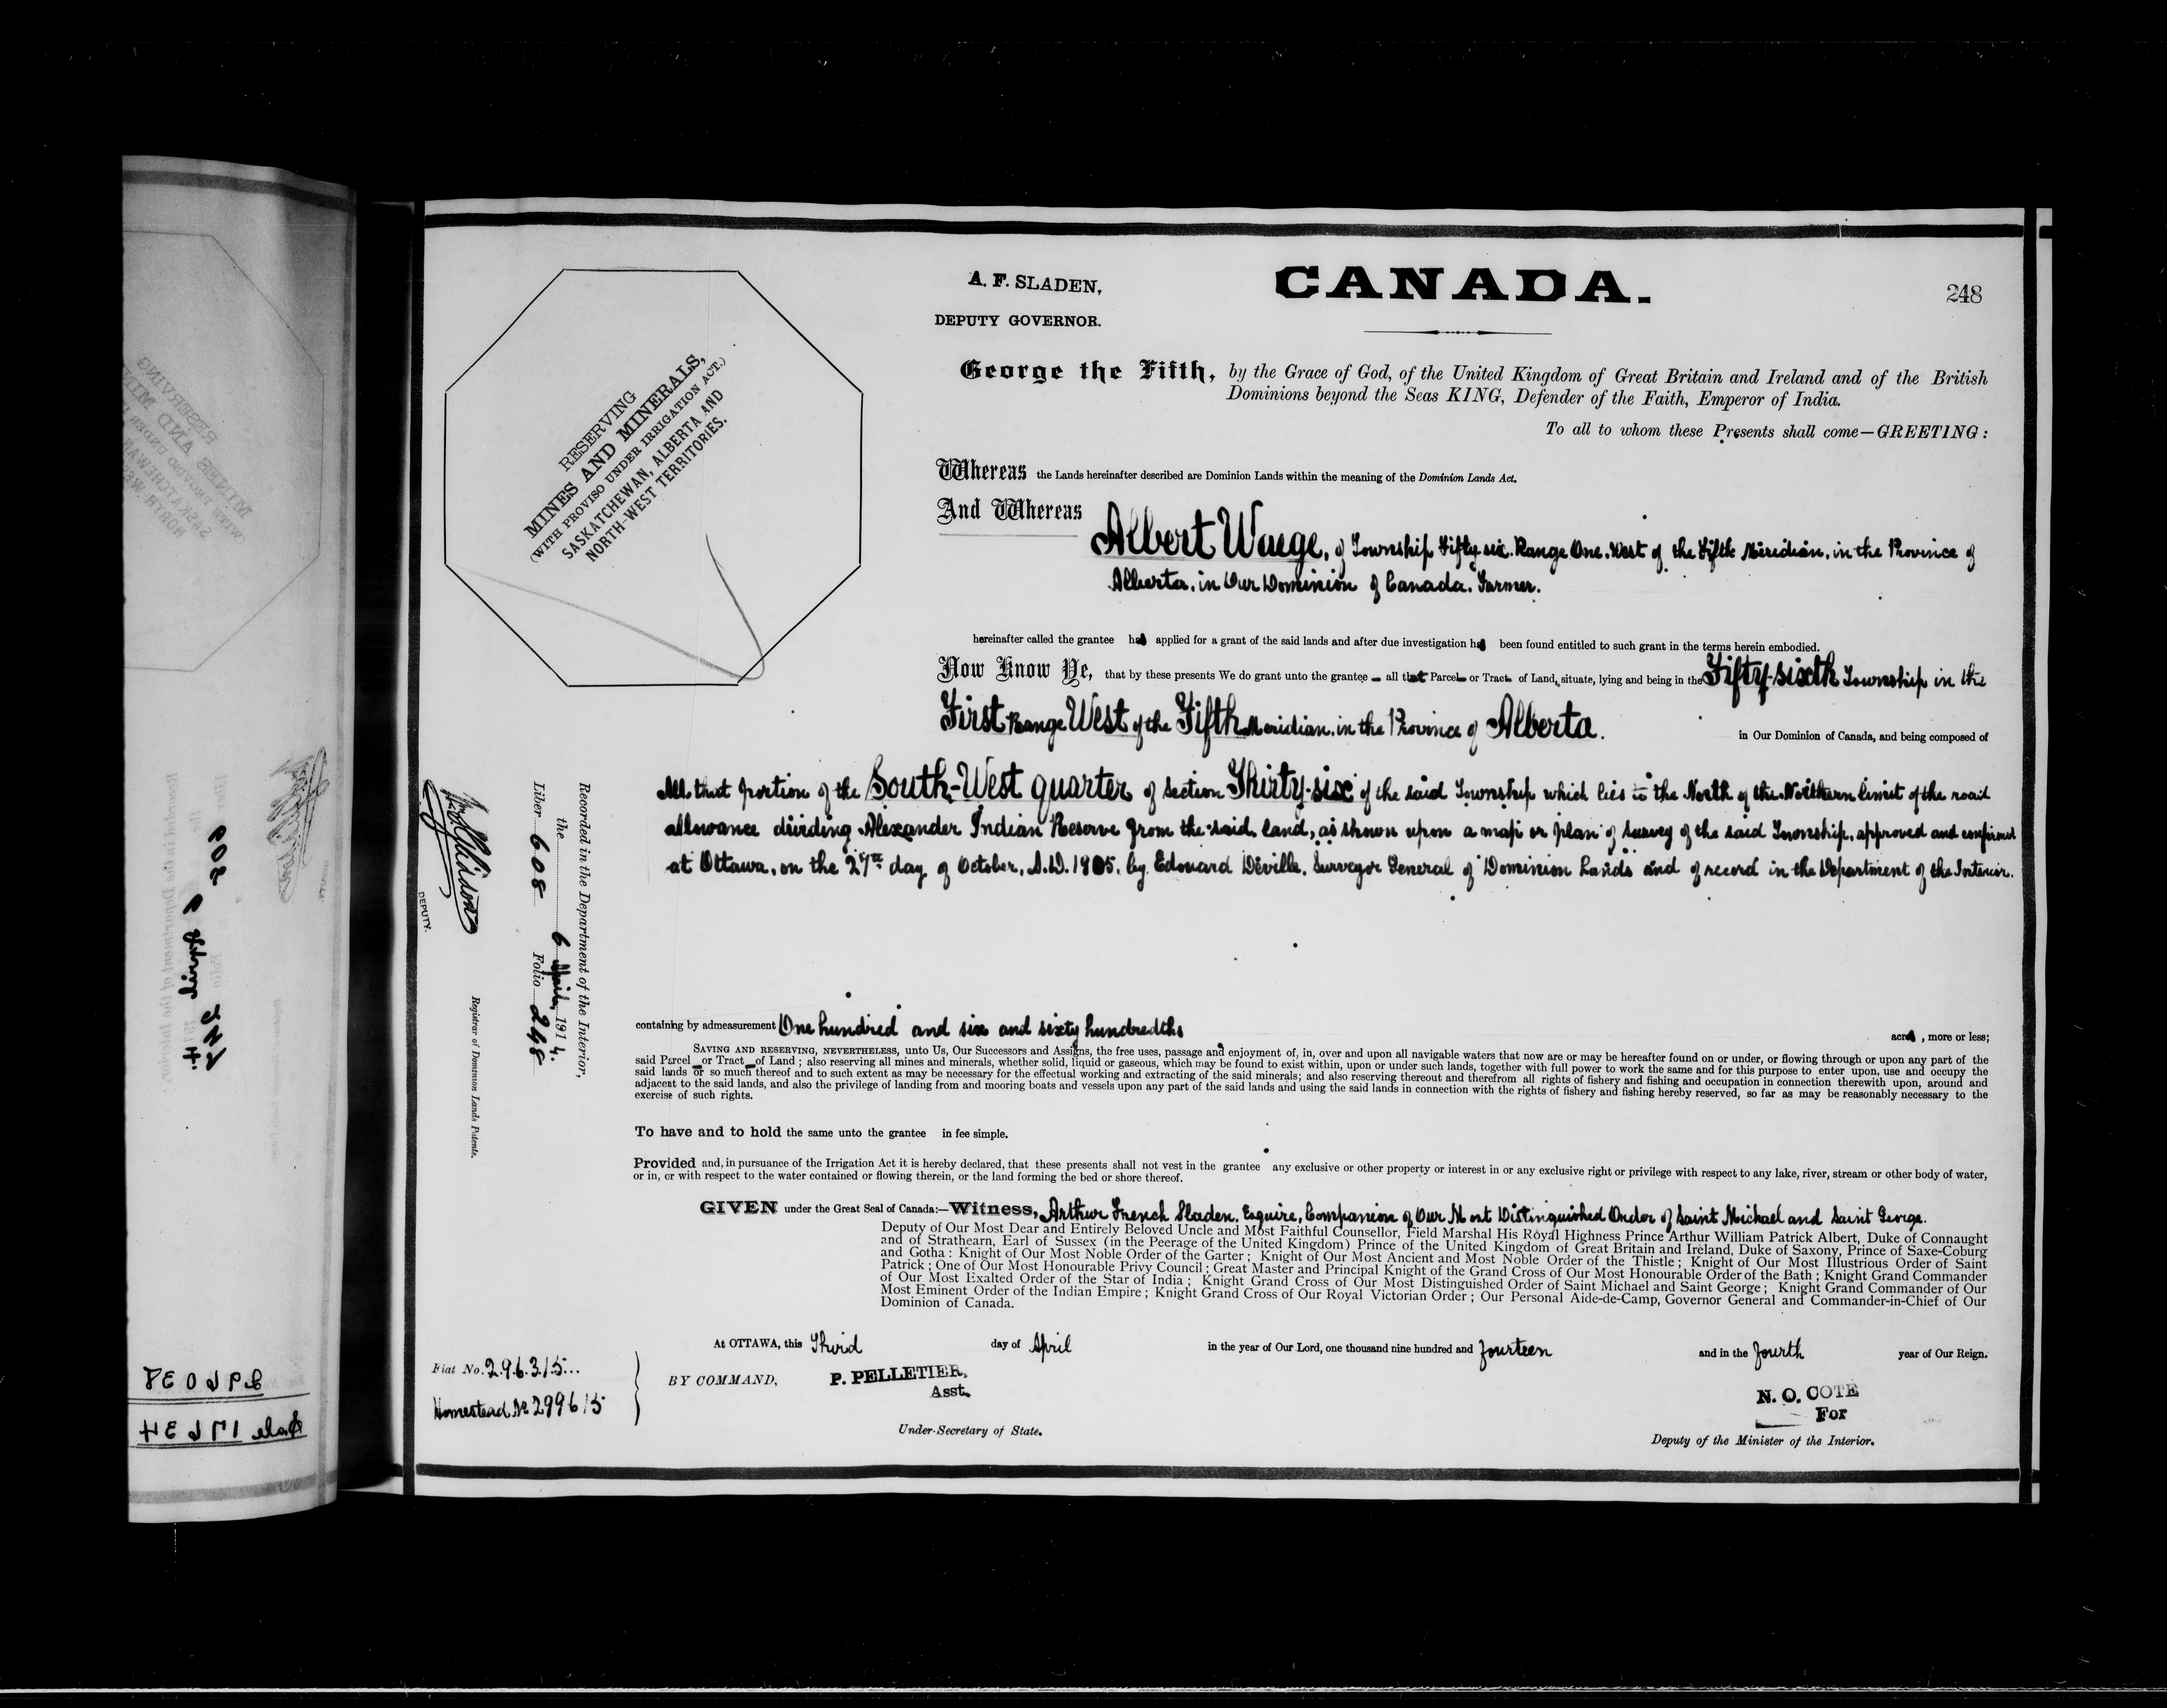 A. F. SLADEN,
DEPUTY GOVERNOR.
CANADA.
248
RESERVING
MINES AND MINERALS,
(WITH PROVISO UNDER IRRIGATION ACT.)
SASKATCHEWAN, ALBERTA AND
NORTH-WEST TERRITORIES.
George the Fifth, by the Grace of God, of the United Kingdom of Great Britain and Ireland and of the British
Dominions beyond the Seas KING, Defender of the Faith, Emperor of India.
To all to whom these Presents shall come—GREETING:
Whereas the Lands hereinafter described are Dominion Lands within the meaning of the Dominion Lands Act.
And Whereas
Albert Waege, of Township Fifty-six, Range One, West of the Fifth Meridian, in the Province of
Alberta, in Our Dominion of Canada, Farmer.
hereinafter called the grantee has applied for a grant of the said lands and after due investigation has been found entitled to such grant in the terms herein embodied.
Now Know Ye, that by these presents We do grant unto the grantee — all that Parcel or Tract of Land, situate, lying and being in the Fifty-sixth Township in the
First Range West of the Fifth Meridian, in the Province of Alberta. in Our Dominion of Canada, and being composed of
All that portion of the South-West quarter of Section Thirty-six of the said Township which lies to the North of the Northern limit of the road
allowance dividing Alexander Indian Reserve from the said land, as shown upon a map or plan of survey of the said Township, approved and confirmed
at Ottawa, on the 27th day of October, A.D. 1905, by Edouard Deville, Surveyor General of Dominion Lands and of record in the Department of the Interior.
containing by admeasurement One hundred and six and sixty hundredths acres, more or less;
SAVING AND RESERVING, NEVERTHELESS, unto Us, Our Successors and Assigns, the free uses, passage and enjoyment of, in, over and upon all navigable waters that now are or may be hereafter found on or under, or flowing through or upon any part of the
said Parcel or Tract of Land; also reserving all mines and minerals, whether solid, liquid or gaseous, which may be found to exist within, upon or under such lands, together with full power to work the same and for this purpose to enter upon, use and occupy the
said lands or so much thereof and to such extent as may be necessary for the effectual working and extracting of the said minerals; and also reserving thereout and therefrom all rights of fishery and fishing and occupation in connection therewith upon, around and
adjacent to the said lands, and also the privilege of landing from and mooring boats and vessels upon any part of the said lands and using the said lands in connection with the rights of fishery and fishing hereby reserved, so far as may be reasonably necessary to the
exercise of such rights.
To have and to hold the same unto the grantee in fee simple.
Provided and, in pursuance of the Irrigation Act it is hereby declared, that these presents shall not vest in the grantee any exclusive or other property or interest in or any exclusive right or privilege with respect to any lake, river, stream or other body of water,
or in, or with respect to the water contained or flowing therein, or the land forming the bed or shore thereof.
GIVEN under the Great Seal of Canada:—Witness, Arthur French Sladen, Esquire, Companion of Our Most Distinguished Order of Saint Michael and Saint George.
Deputy of Our Most Dear and Entirely Beloved Uncle and Most Faithful Counsellor, Field Marshal His Royal Highness Prince Arthur William Patrick Albert, Duke of Connaught
and of Strathearn, Earl of Sussex (in the Peerage of the United Kingdom) Prince of the United Kingdom of Great Britain and Ireland, Duke of Saxony, Prince of Saxe-Coburg
and Gotha: Knight of Our Most Noble Order of the Garter; Knight of Our Most Ancient and Most Noble Order of the Thistle; Knight of Our Most Illustrious Order of Saint
Patrick; One of Our Most Honourable Privy Council; Great Master and Principal Knight of the Grand Cross of Our Most Honourable Order of the Bath; Knight Grand Commander
of Our Most Exalted Order of the Star of India; Knight Grand Cross of Our Most Distinguished Order of Saint Michael and Saint George; Knight Grand Commander of Our
Most Eminent Order of the Indian Empire; Knight Grand Cross of Our Royal Victorian Order; Our Personal Aide-de-Camp, Governor General and Commander-in-Chief of Our
Dominion of Canada.
At OTTAWA, this Third day of April in the year of Our Lord, one thousand nine hundred and fourteen and in the fourth year of Our Reign.
BY COMMAND,
P. PELLETIER,
Asst.
Under-Secretary of State.
N. O. COTE
For
Deputy of the Minister of the Interior.
Fiat No. 296315
Homestead No 299615
Recorded in the Department of the Interior,
the 6 April, 1914.
Liber 608 Folio 248
DEPUTY.
Registrar of Dominion Lands Patents.